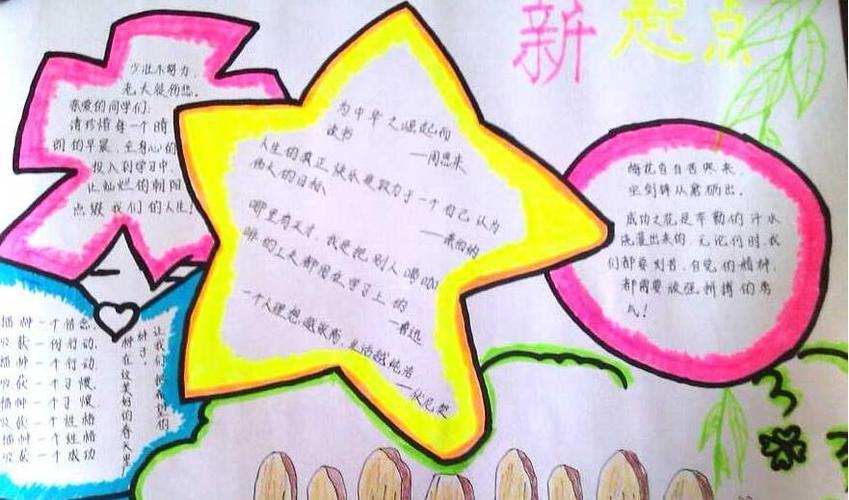 新起点
少壮不努力,
老大徒伤悲。
亲爱的同学们:
请珍惜每一个晴
朗的早晨,全身心的
投入到学习中,
让灿烂的朝阳
点缀我们的人生!
为中华之崛起而
读书
——周恩来
人生的真正快乐是致力于一个自己认为
伟大的目标
——萧伯纳
哪里有天才,我是把别人喝咖
啡的工夫都用在学习上的
——鲁迅
一个人理想越崇高,生活越纯洁
——伏尼契
梅花香自苦寒来,
宝剑锋从磨砺出。
成功之花是辛勤的汗水
浇灌出来的,无论何时,我
们都要刻苦、自觉的精神,
都需要顽强拼搏的勇
气!
播种一个信念,
收获一份行动,
播种一个行动
收获一个习惯,
播种一个习惯,
收获一个性格
播种一个性格
收获一个成功
让我们把希望的
种子,
种在这美好的春天里